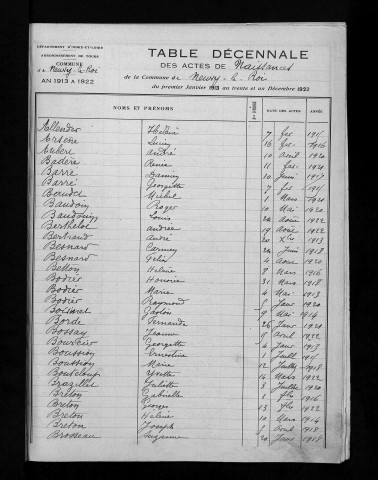 DÉPARTEMENT D'INDRE-ET-LOIRE
ARRONDISSEMENT DE TOURS
COMMUNE
de Neuvy-le-Roi
AN 1913 A 1922
TABLE DÉCENNALE
DES ACTES DE Naissances
de la Commune de Neuvy-le-Roi
du premier Janvier 1913 au trente et un Décembre 1922
NOMS ET PRÉNOMS DATES DES ACTES ANNÉE
Hélène 7
Arsène Lucien 16 1916
Aubert André 10 Avril 1920
Badère Renée 11 1921
Barré 10 Juin 1917
Barré Georgette 7
Michel 1 Mars 1920
Baudoin Roger 10 Mai 1920
Baudouin Louis Août 1922
Berthelot Andrée 19 Août 1922
Bertrand André 20 Xbre 1913
Besnard Carmen Juin 1918
Besnard 4 Août 1920
Hélène 8 Mars 1916
Bodier Honorine 31 Mars 1918
Bodier Marie 4 Mai 1913
Bodier Raymond Janv 1920
Gaston 9 Mai 1914
Borde Fernande 26 Janv 1920
Bossay 8 Avril 1922
Bourcier Georgette 4 Janv 1917
Boussion Ernestine 1 Juill
Boussion Marie 12 Juillet 1918
Bouteloup Yvette 14 Mars 1922
Juliette 3 Juillet 1920
Breton Gabrielle 1 1916
Breton Georges 13 1922
Breton Hélène 10 Mars 1914
Breton Joseph 8 Avril 1918
Brosseau Suzanne 20 Janv 1918